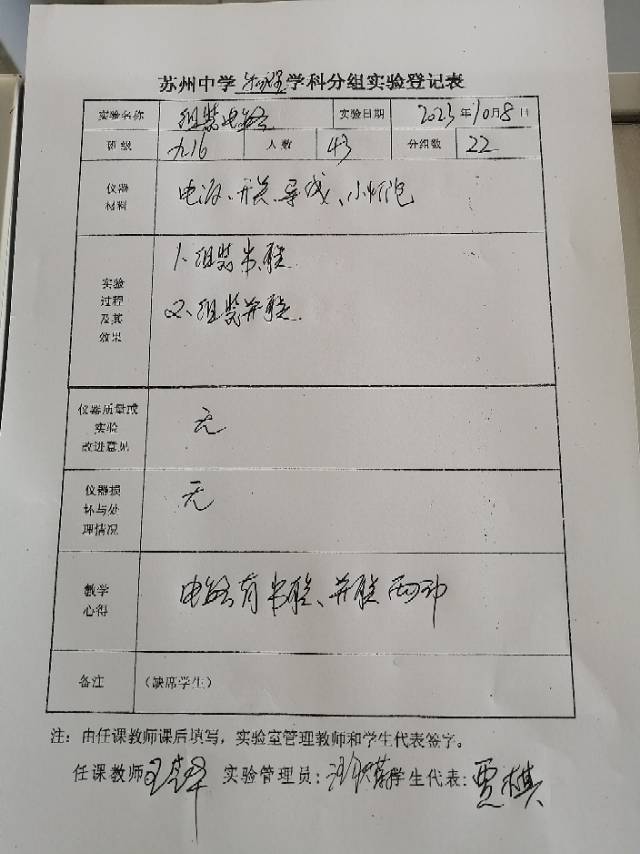 苏州中学 物理 学科分组实验登记表
实验名称 组装电路 实验日期 2023年10月8日
班级 九.16 人数 43 分组数 22
仪器材料 电源、开关、导线、小灯泡
实验过程及其效果 1、组装串联
2、组装并联.
仪器质量或实验改进意见 无
仪器损坏与处理情况 无
教学心得 电路有串联、并联两种
备注 (缺席学生)
注：由任课教师课后填写，实验室管理教师和学生代表签字。
任课教师 实验管理员: 学生代表: 贾棋